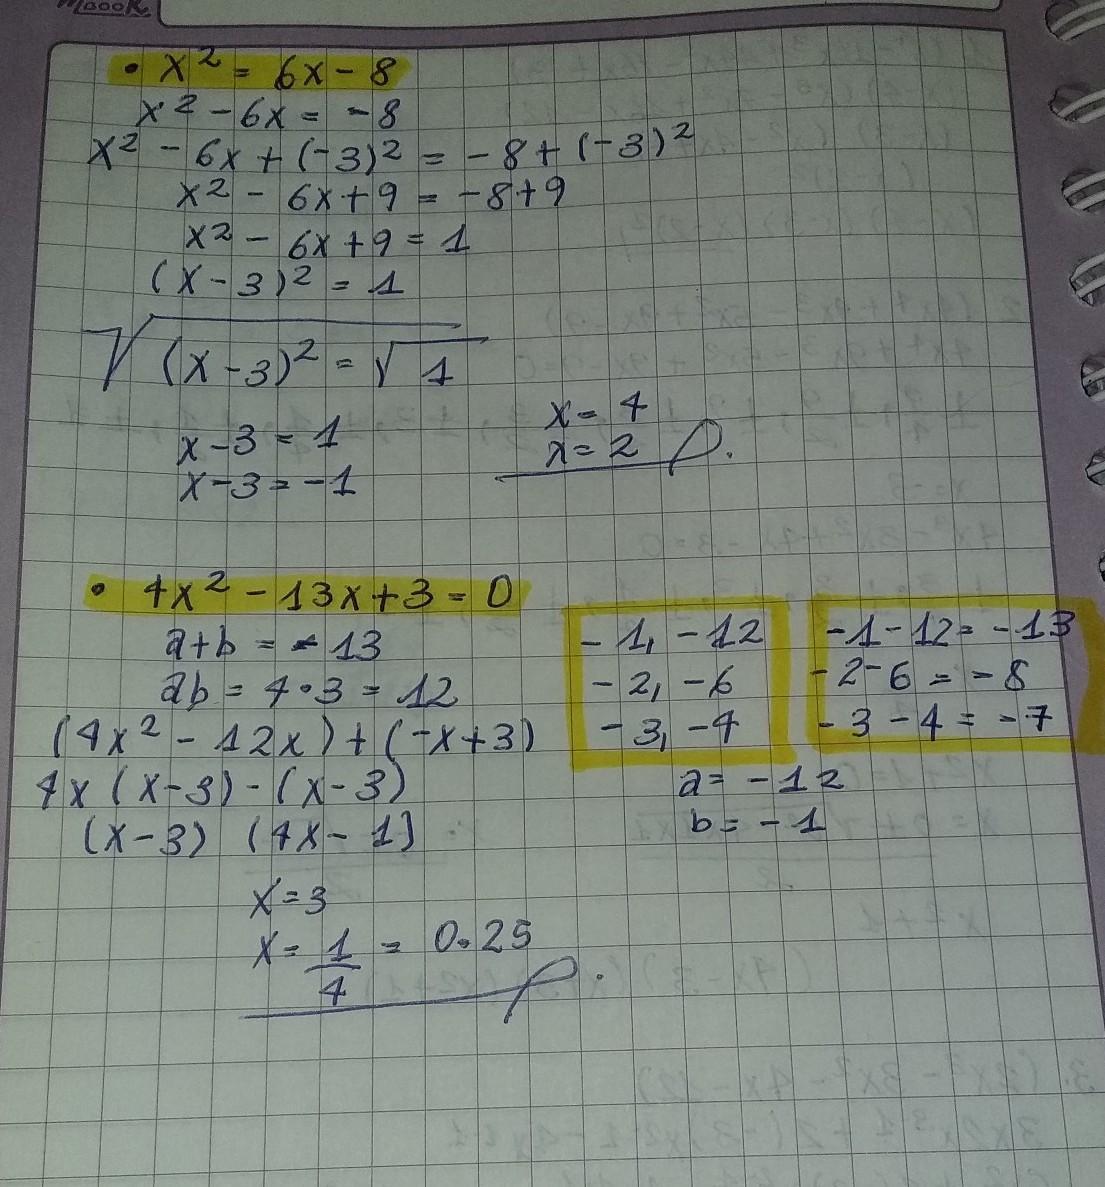 • x² = 6x - 8
x² - 6x = -8
x² - 6x + (-3)² = -8 + (-3)²
x² - 6x + 9 = -8 + 9
x² - 6x + 9 = 1
(x - 3)² = 1
√(x - 3)² = √1
x - 3 = 1
x - 3 = -1
x = 4
x = 2
• 4x² - 13x + 3 = 0
a + b = -13
ab = 4 • 3 = 12
(4x² - 12x) + (-x + 3)
4x (x - 3) - (x - 3)
(x - 3) (4x - 1)
-1, -12
-2, -6
-3, -4
-1 - 12 = -13
-2 - 6 = -8
-3 - 4 = -7
a = -12
b = -1
x = 3
x = 1/4 = 0.25